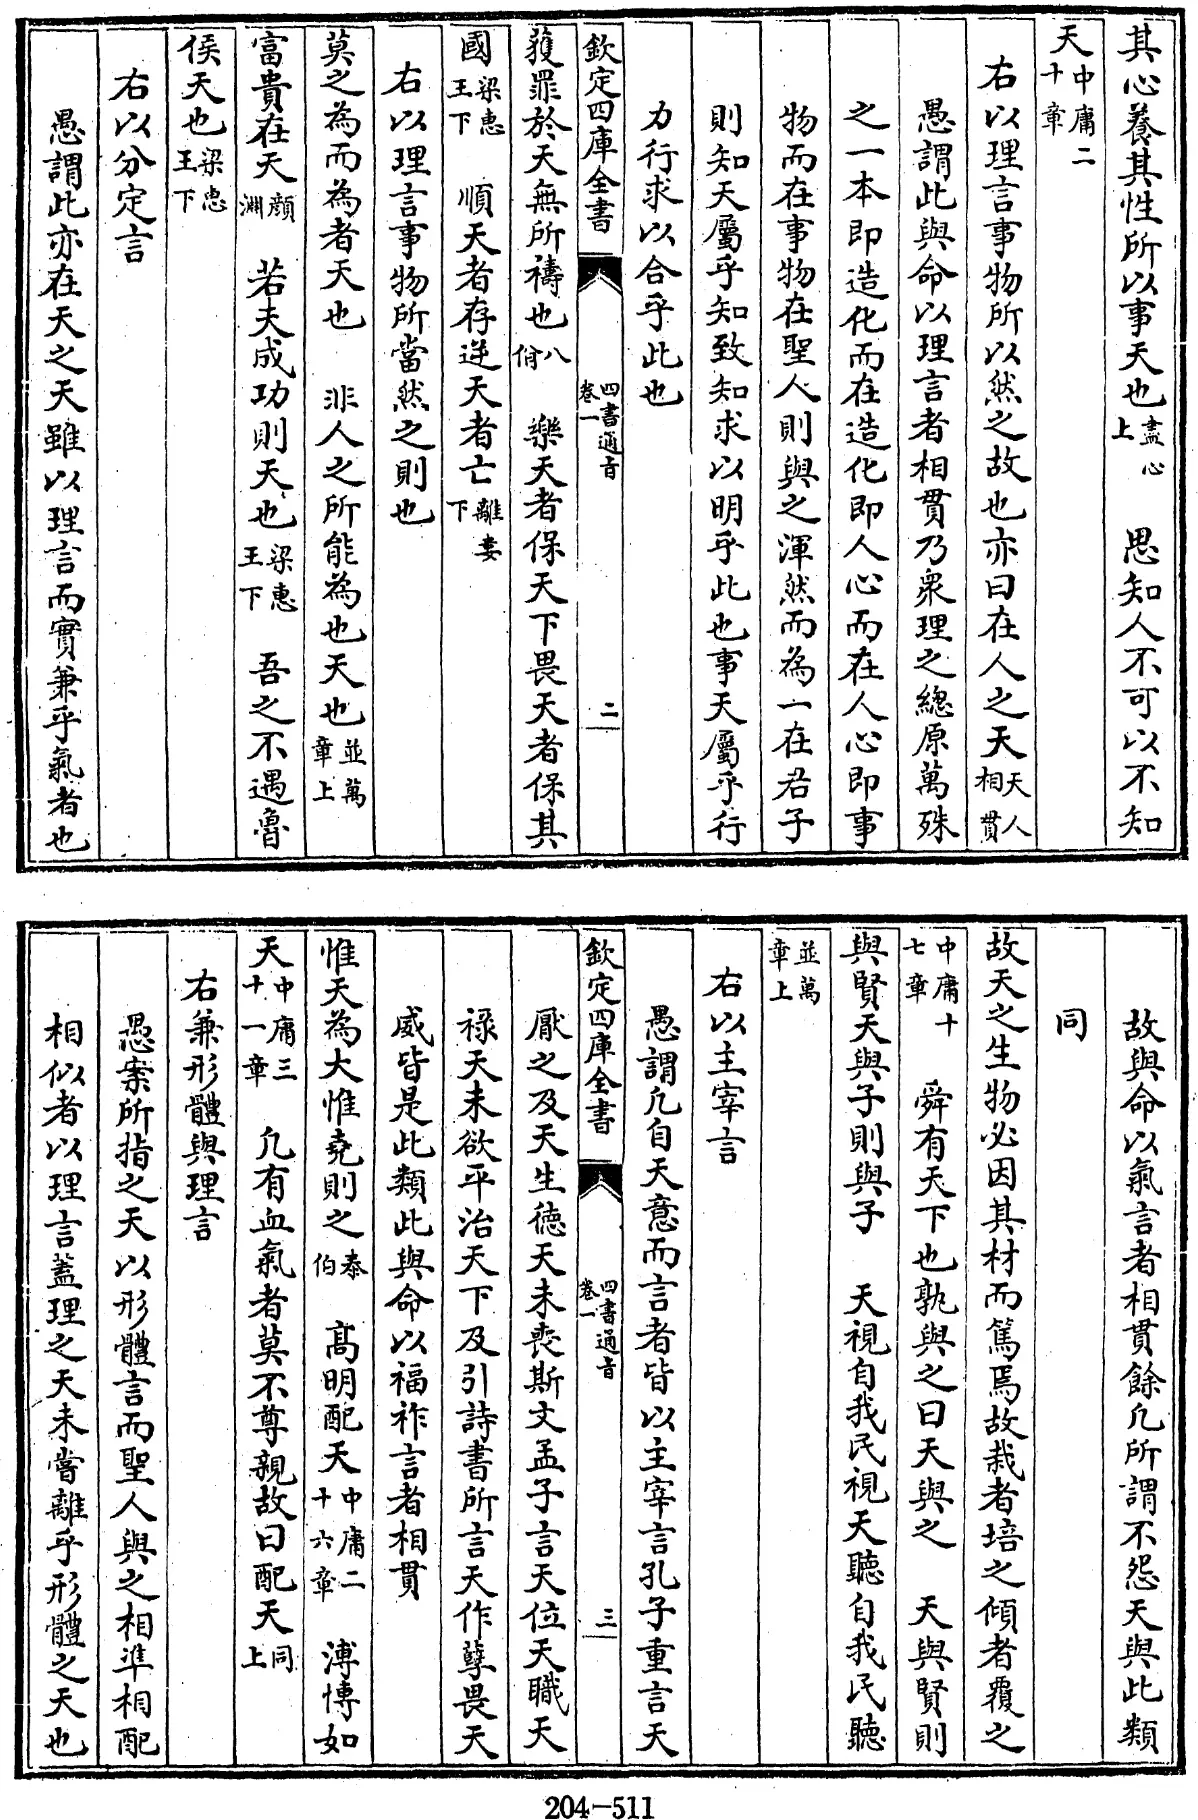 其心養其性所以事天也盡心上　思知人不可以不知
天中庸二十章
右以理言事物所以然之故也亦曰在人之天天人相貫
愚謂此與命以理言者相貫乃衆理之總原萬殊
之一本即造化而在造化即人心而在人心即事
物而在事物在聖人則與之渾然而為一在君子
則知天屬乎知致知求以明乎此也事天屬乎行
力行求以合乎此也
欽定四庫全書　四書通旨卷一　二
獲罪於天無所禱也八佾　樂天者保天下畏天者保其
國梁惠王下　順天者存逆天者亡離婁下
右以理言事物所當然之則也
莫之為而為者天也　非人之所能為也天也並萬章上
富貴在天顔淵　若夫成功則天也梁惠王下　吾之不遇魯
侯天也梁惠王下
右以分定言
愚謂此亦在天之天雖以理言而實兼乎氣者也
故與命以氣言者相貫餘凡所謂不怨天與此類
同
故天之生物必因其材而篤焉故栽者培之傾者覆之
中庸十七章　舜有天下也孰與之曰天與之　天與賢則
與賢天與子則與子　天視自我民視天聽自我民聽
並萬章上
右以主宰言
愚謂凡自天意而言者皆以主宰言孔子重言天
欽定四庫全書　四書通旨卷一　三
厭之及天生德天未喪斯文孟子言天位天職天
祿天未欲平治天下及引詩書所言天作孽畏天
威皆是此類此與命以福祚言者相貫
惟天為大惟堯則之泰伯　高明配天中庸二十六章　溥博如
天中庸三十一章　凡有血氣者莫不尊親故曰配天同上
右兼形體與理言
愚案所指之天以形體言而聖人與之相準相配
相似者以理言蓋理之天未嘗離乎形體之天也
204-511